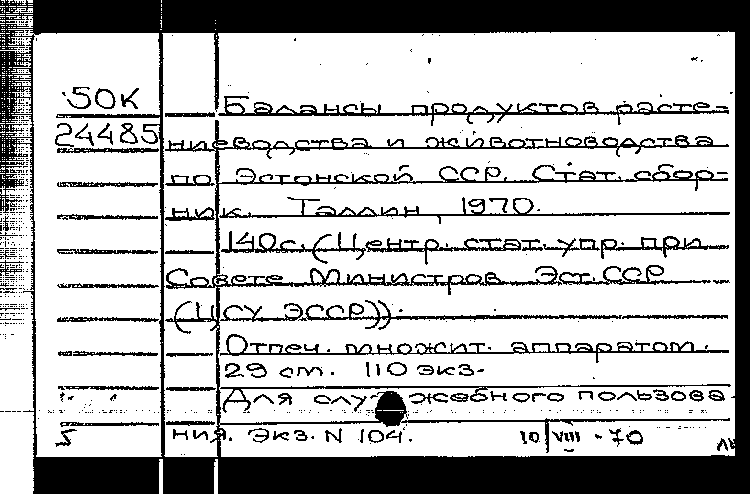 50К
Балансы продуктов расте=
24485 ниеводства и животноводства
по Эстонской ССР. Стат. сбор=
ник. Таллин, 1970.
140с. (Центр. стат. упр. при
Совете Министров Эст. ССР
(ЦСУ ЭССР)).
Отпеч. множит. аппаратом.
29 cm. 110 экз.
Для служебного пользова
ния. Экз. N 104. 10/VIII - 70